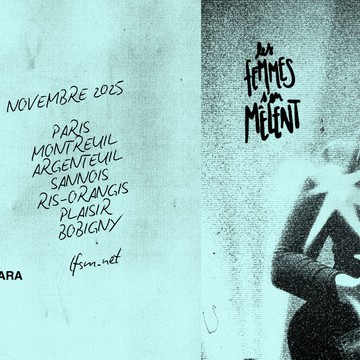 NOVEMBRE 2025
PARIS
MONTREUIL
ARGENTEUIL
SANNOIS
RIS-ORANGIS
PLAISIR
BOBIGNY
lfsm.net
ARA
les
FEMMES
s'en
MÊLENT